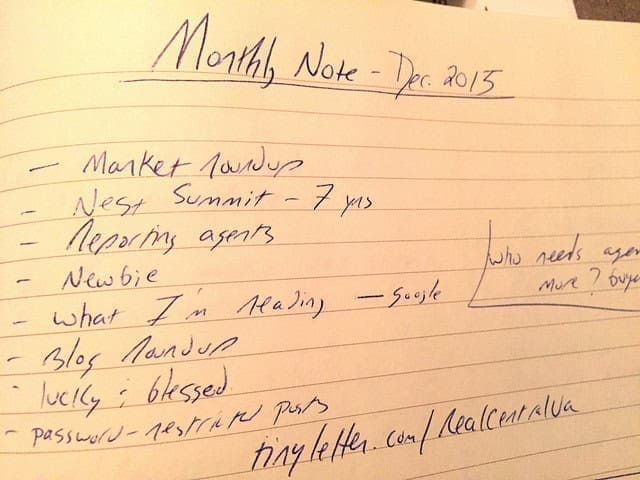 Monthly Note - Dec. 2015
- Market roundup
- Nest Summit - 7 yrs
- Reporting agents
- Newbie
- What I'm reading - Google
who needs agen
more? buye
- Blog roundup
- lucky & blessed
- password-restricted posts
tinyletter.com/RealCentralVa